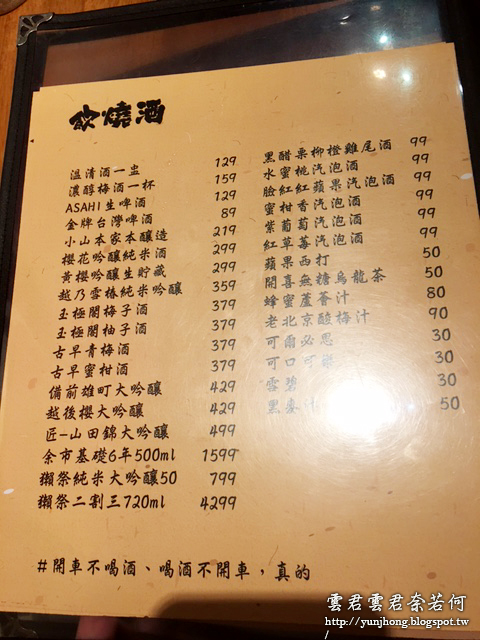 飲燒酒
溫清酒一盅 129
濃醇梅酒一杯 159
ASAHI生啤酒 129
金牌台灣啤酒 89
小山本家本釀造 219
櫻花吟釀純米酒 299
黃櫻吟釀生貯藏 299
越乃雪椿純米吟釀 359
玉極閣梅子酒 379
玉極閣柚子酒 379
古早青梅酒 379
古早蜜柑酒 379
備前雄町大吟釀 429
越後櫻大吟釀 429
匠-山田錦大吟釀 499
余市基礎6年500ml 1599
獺祭純米大吟釀50 799
獺祭二割三720ml 4299
黑醋栗柳橙雞尾酒 99
水蜜桃汽泡酒 99
臉紅紅蘋果汽泡酒 99
蜜柑香汽泡酒 99
紫葡萄汽泡酒 99
紅草莓汽泡酒 99
蘋果西打 50
開喜無糖烏龍茶 50
蜂蜜蘆薈汁 80
老北京酸梅汁 90
可爾必思 30
可口可樂 30
雪碧 30
黑麥汁 50
#開車不喝酒、喝酒不開車，真的
雲君雲君奈若何
http://yunjhong.blogspot.tw